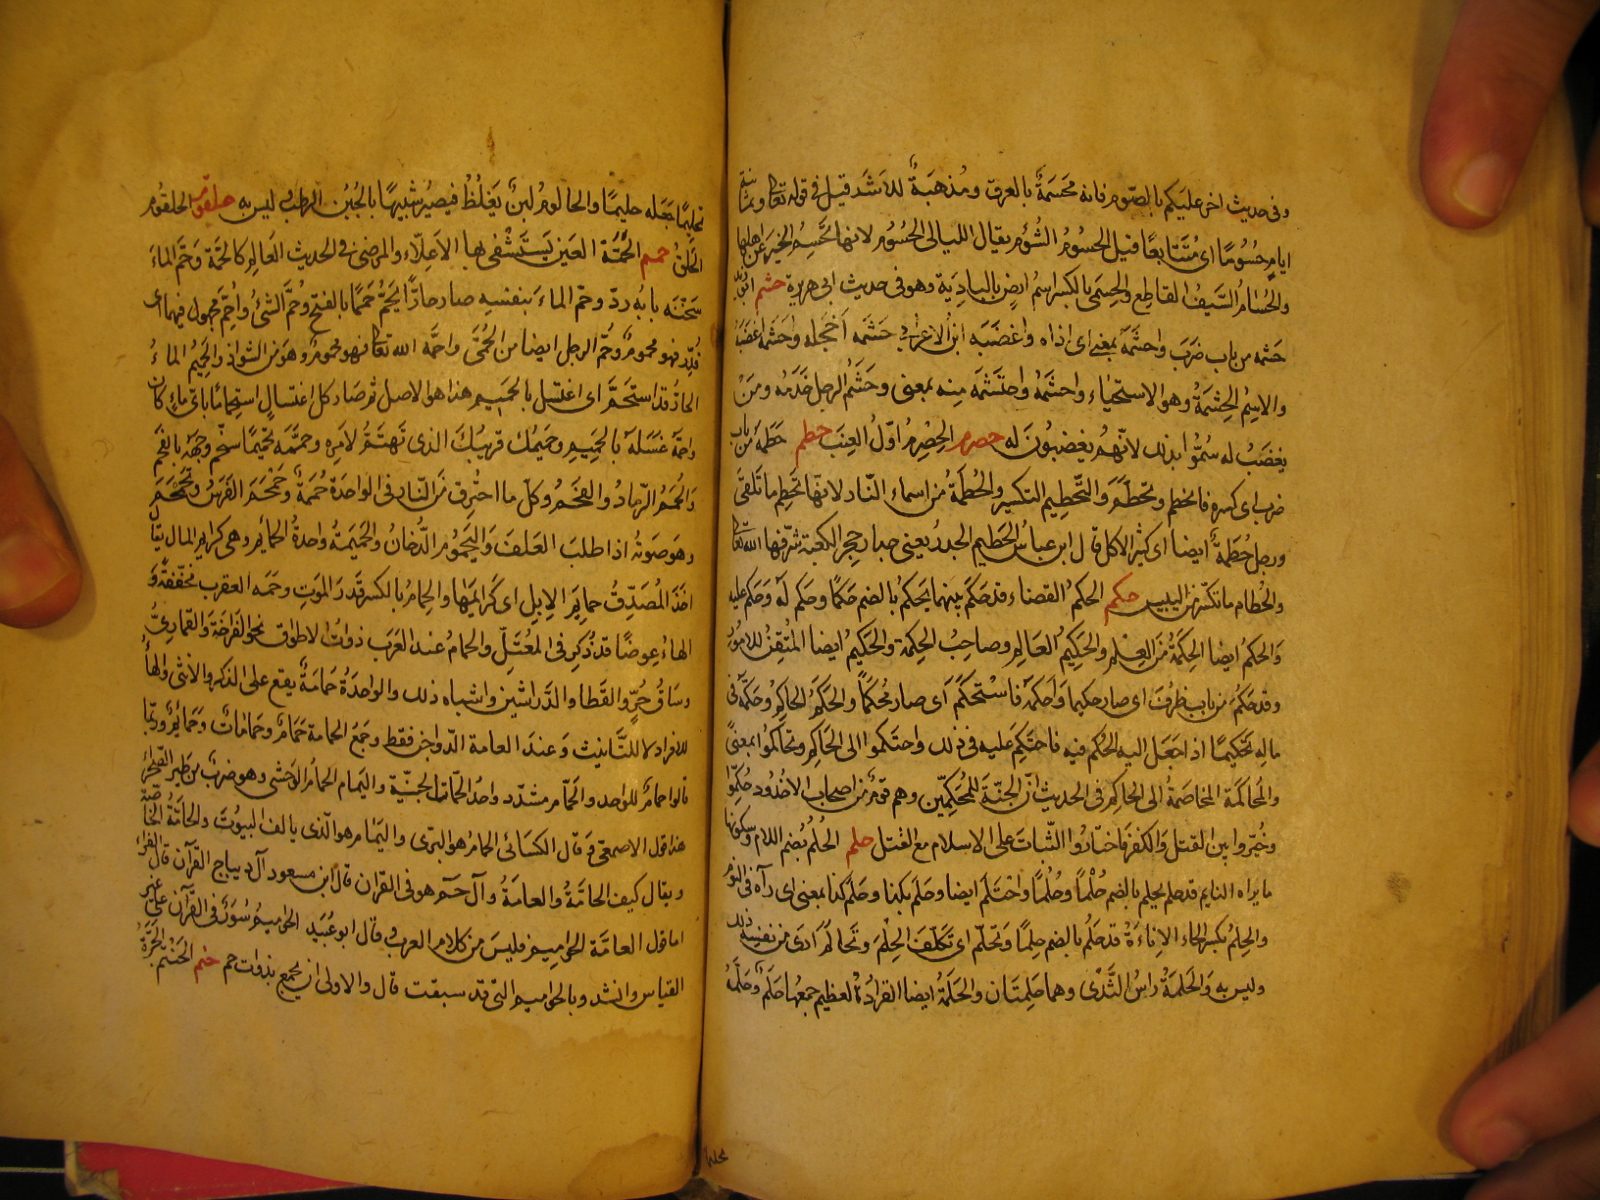 وفى حديث اخر عليكم بالصوم فانه مَحسَمةٌ بالعرق ومُذهبَةٌ للاَشَد قيل فى قوله تعالى وثمانية
ايامٍ حُسُومًا اى مُتَتَابعًا قيل الحسومُ الشُؤم يقال الليالى الحُسُومُ لانها تَحسِمُ الخيرَ عن اهلها
والحُسَامُ السَّيفُ القاطِع والحِسمَى بالكسر اسمُ ارضٍ بالبادِيَة وهو فى حديث ابى هريرة حشم ابو زيد
حشمه من باب ضرَبَ واحشمَهُ بمعنى اى اذاه واغضَبَه ابن الاعرابى حَشَمَه اَخجَله واَحشَمَه اغضَبَه
والاسمُ الحِشمَةُ وهو الاستحياء واحشَمَهُ واحتَشَمَه منه بمعنى وحَشَمُ الرجل خَدَمُه ومَنْ
يغضَبُ له سُمُّوا بذلك لانّهُم يغضبُونَ له حصرم الحِصْرِمُ اوّلُ العِنَب حطم حَطَمَه من باب
ضرب اى كسره فانحطم وتحطَّمَ والتَّحطِيم التكسير والحُطَمَةُ من اسماء النّار لانّها تَحطِم ما تَلقى
ورجل حُطَمَةٌ ايضا اى كثير الاكل قال ابن عباسٍ الحَطِيم الجدرُ يعنى جدار حِجر الكعبة شرّفها الله تعالى
والحُطام ما تكسّر من اليَبِيس حكم الحكمُ القضاء وقد حَكَمَ بينهما يَحكُم بالضم حُكمًا وحكم له وحَكم عليه
والحكمُ ايضا الحِكمَةُ مِنَ العِلم والحَكِيمُ العَالِم وصاحبُ الحِكمة والحَكيمُ ايضا المُتقِنُ للامُور
وقد حَكُمَ من باب ظرُفَ اى صار حكيما وَاَحكمَه فاسْتحكَمَ اى صار مُحكَمًا والحَكَمُ الحاكِم وحَكَّمَه فى
مالِه تَحكيمًا اذا جَعَل اليه الحُكم فيه فاحتكم عليه فى ذلك واحتكموا الى الحَاكِم وتحاكمُوا بمعنىً
والمُحاكَمَة المخاصَمةُ الى الحاكِم فى الحديث انّ الجنّةَ للمُحكَّمِين وهم قومٌ من اصحاب الاخدُود حُكِّمُوا
وخُيّروا بين القتل والكفر فاختارُوا الثَّباتَ على الاسلام مع القتل حلم الحُلُم بضم اللام وسكونها
ما يراه النايم وقد حلم يحلم بالضم حُلْمًا وحُلُمًا واحْتَلَم ايضا وحَلَم بكذا وحَلَم كذا بمعنى اى رآه فى النوم
والحِلمُ بكسر الحاء الاِناءَةُ وقد حَلُم بالضم حِلمًا وتَحلّم اى تكلّفَ الحِلمَ وتَحالَم اَرى من نفسه ذلك
وليس به والحَلَمَةُ راسُ الثَّدْى وهما حَلَمتان والحَلَمَةُ ايضا القُرادُ العظيم جمعُها حَلَم وحَلَّمَهُ
تحليمًا جَعَله حليمًا والحالومُ لبنٌ يَغلُظُ فيصير شبيهًا بالجُبُن الرطب وليس به حلقوم الحلقُوم
الحَلقُ حمم الحَمَّة العَين يَستشْفى بها الاَعِلّاء والمرضى فى الحديث العَالِم كالحَمّة وحَمَّ الماءَ
سَخّنَه بابُه ردّ وحمّ الماءَ بنفسِه صار حارّا يَحَمُّ حَمَمًا بالفتح وحُمَّ الشئُ واُحِمَّ مجهول فيهما اى
قُدِّر فهو محمومٌ وحُمَّ الرجل ايضا من الحُمَّى واحمّه الله تعالى فهو محمومٌ وهو من الشواذ والحميمُ الماءُ
الحارّ وقد استَحَمَّ اى اغتسل بالحَمِيمِ هذا هو الاصل ثم صَار كل اغتسالٍ استحِمامًا باى ماءٍ كان
واحمّه غَسَلَه بالحَمِيمِ وحميمُك قريبُك الذى تَهتَمُّ لاَمرِه وحَمَّمَه تحمِيمًا سخَّم وجهَه بالفَحم
وَالحُمَمُ الرّمادُ والفحَمُ وكلّ ما احترق من النّار الواحدَة حُمَمَةٌ وحَمْحَمَ الفَرَسُ وتحمحَمَ
وهو صَوتُه اذا طلبَ العَلَفَ وَاليَحمُوم الدُّخانُ والحَمِيمَةُ واحدةُ الحمائم وهى كرايم المال يقال
اخذ المُصَدِّقُ حمايم الاِبِلِ اى كَرايِمَهَا والحِمامُ بالكسر قدَرَ الموتِ وحُمَة العقرب مخففةٌ و
الهاءُ عِوضًا قد ذُكر فى المعتَلّ والحمامُ عند العَرَب ذواتُ الاطواق نحو الفَرخَة وَالقمارِى
وسَاقُ حُرٍّ والقطا والدّراشين واشباه ذلك والواحدَةُ حمامَةٌ يقع على الذكر والانثى والهاءُ
للافراد لا للتّانيث وَعند العامة الدّواجن فقط وجَمعُ الحمامة حَمَامٌ وحَمَاماتٌ وَحَمَائمُ وربّما
قالوا حمامٌ للواحد والحمّام مشدّد واحد الحمّاما الجنيّة واليَمام الحمامُ الوَحشى وهو ضربٌ من طير الصحراء
هذا قول الاصمعى وقال الكسَائى الحمامُ هو البرّى واليَمامُ هو الّذى يالف البيُوتَ والحامَّة الخاصّة
ويقال كيف الحامّةُ والعامةُ وآل حم هو فى القران قال ابن مسعود آل ديباج القرآن قال الفرّاء
اما قول العامّة الحواميم فليس من كلام العرب وقال ابو عُبيد الحواميم سُوَر فى القرآن على غير
القياس وانشد وبالحواميم التى قد سبعت قال والاولى ان يجمع بذوات حم حنم الحَنْتَمُ الجَرَّةُ
تحليما